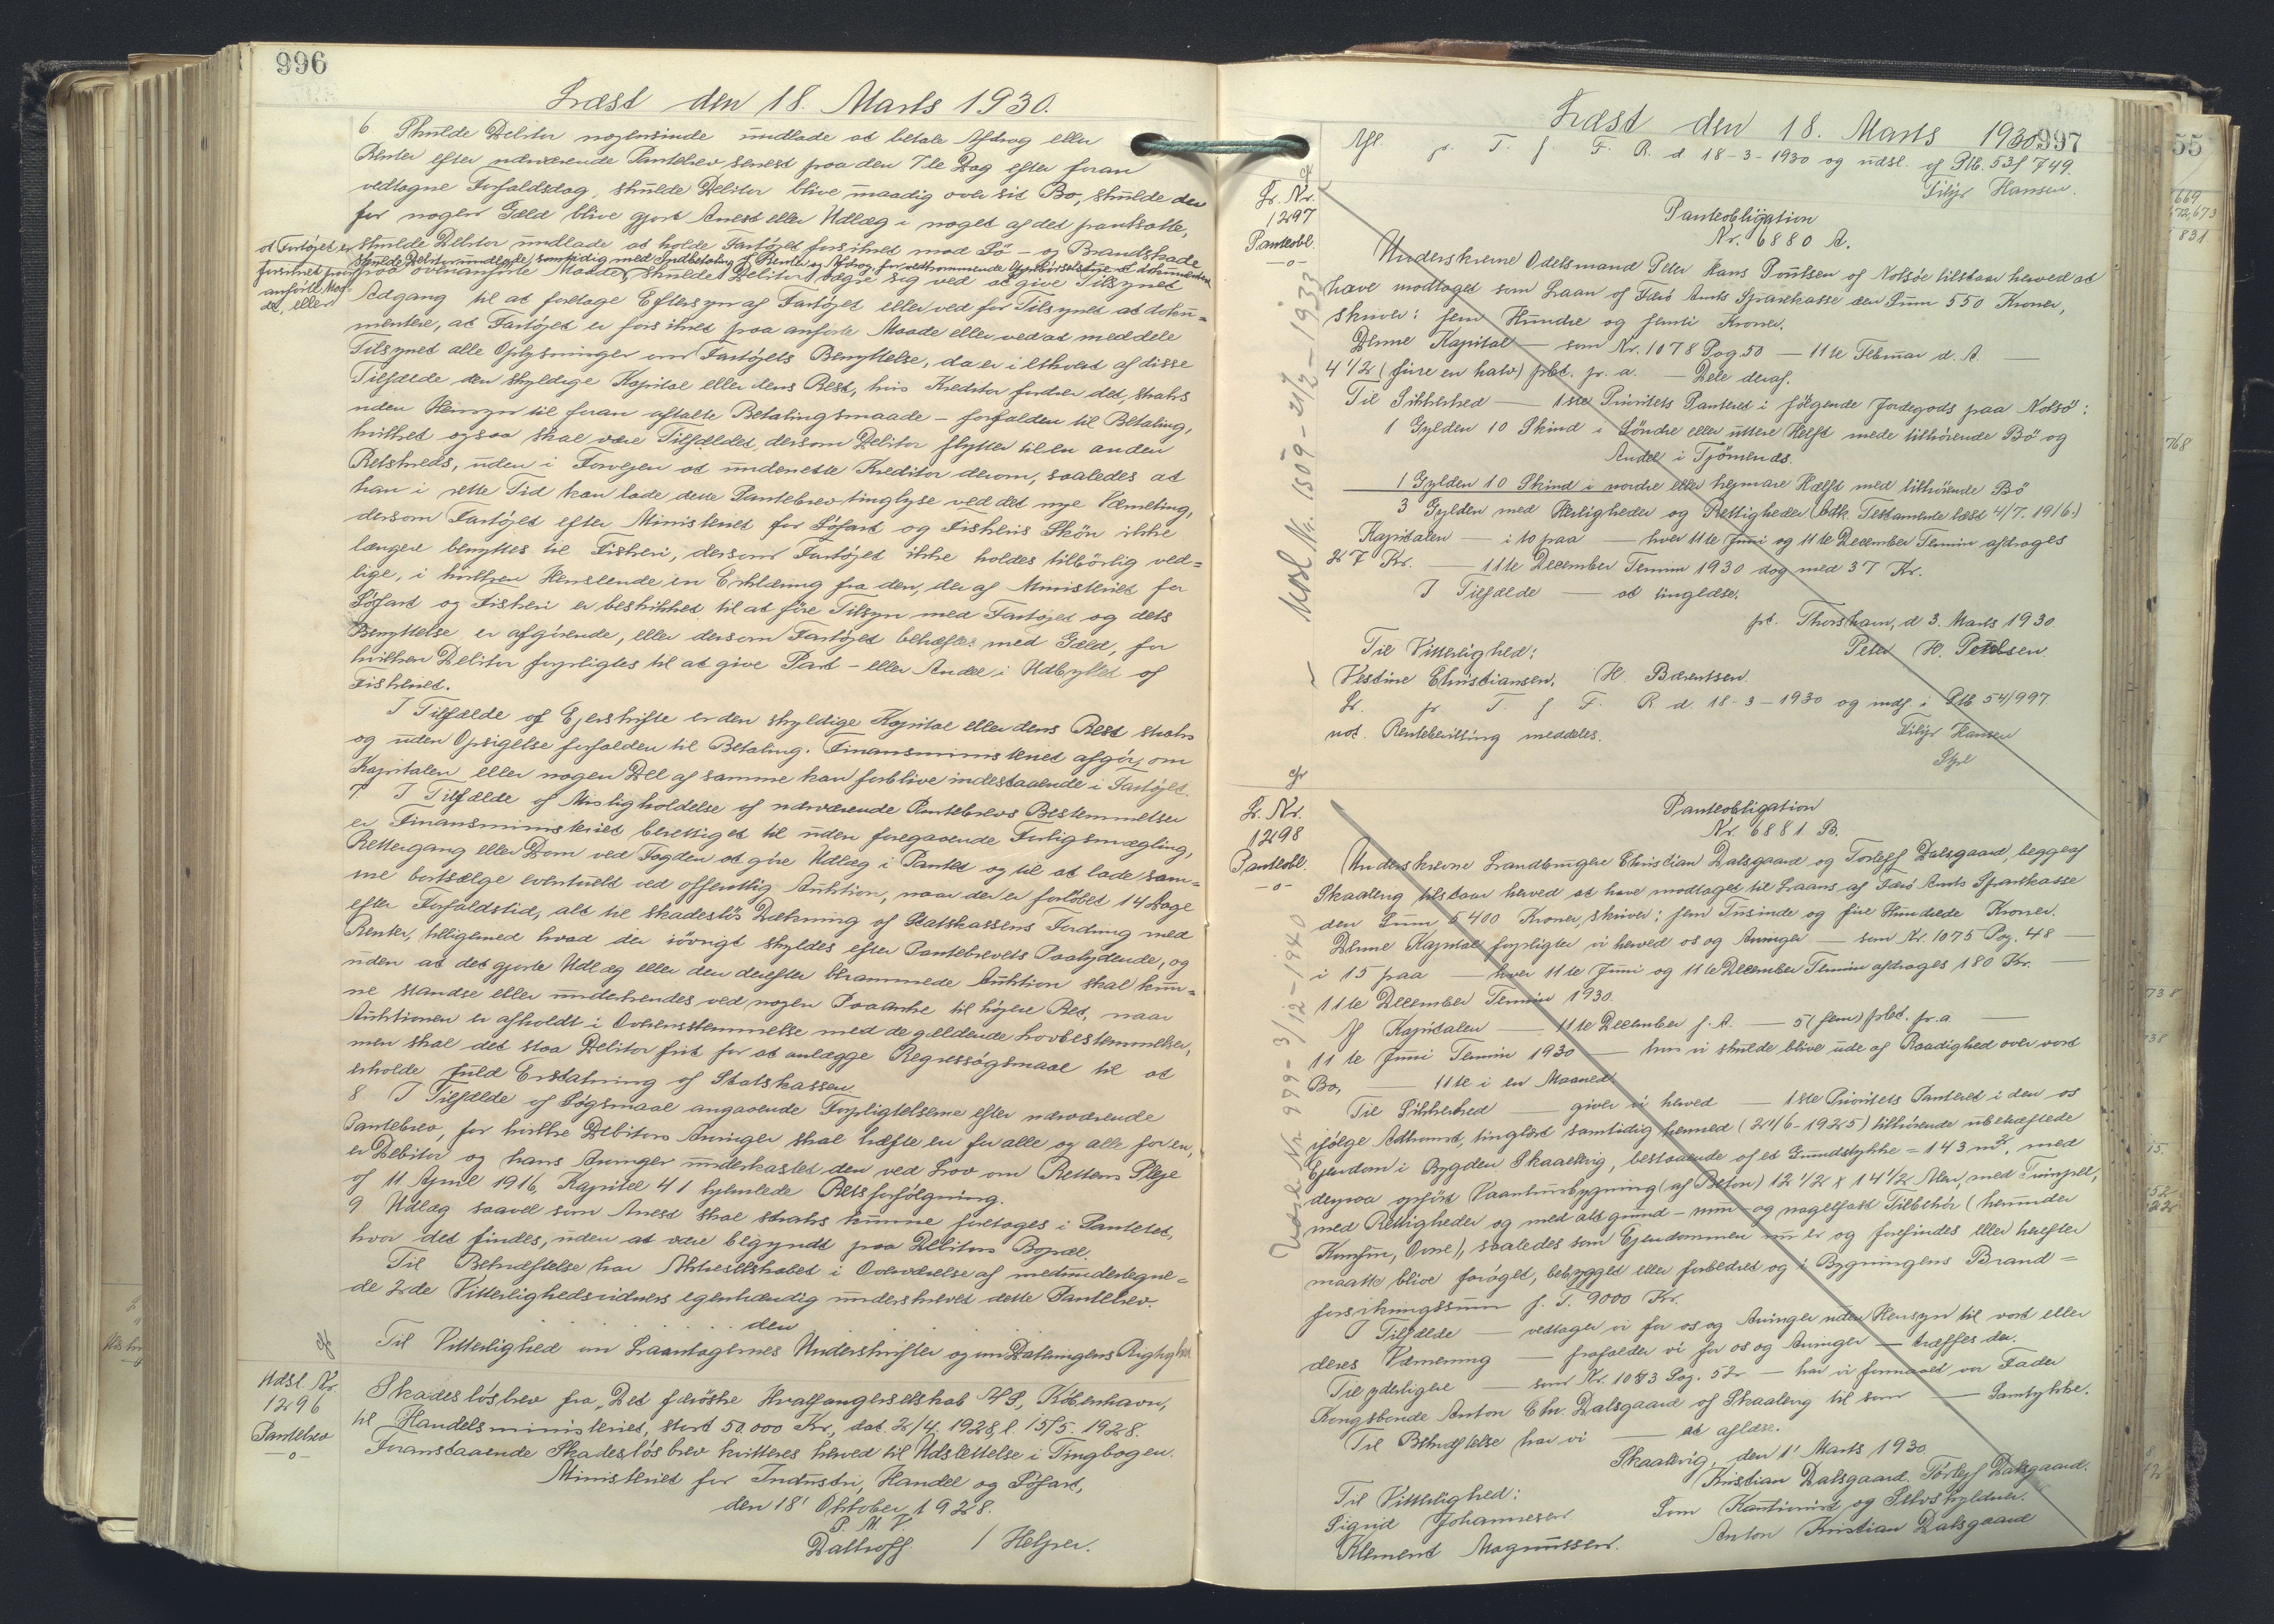 996
Læst den 18. Marts 1930.
6 Skulde Debitor nogensinde undlade at betale Afdrag eller
Renter efter nærværende Pantebrev senest paa den 7de Dag efter foran
vedtagne Forfaldsdag, skulde Debitor blive uraadig over sit Bo, skulde der
for nogen Gæld blive gjort Arrest eller Udlæg i noget af det pantsatte,
skulde Debitor undlade at holde Fartøjet forsikret mod Sø- og Brandskade
skulde Debitor undlade, samtidig med Indbetaling af Renter og Afdrag, for vedkommende Oppebørselsbetjent at dokumentere
at Fartøjet er
forsikret paa
anførte Maa-
de, eller
paa ovenanførte Maade, skulde Debitor vægre sig ved at give Tilsynet
Adgang til at foretage Eftersyn af Fartøjet eller ved for Tilsynet at doku=
mentere, at Fartøjet er forsikret paa anførte Maade eller ved at meddele
Tilsynet alle Oplysninger om Fartøjets Benyttelse, da er i ethvert af disse
Tilfælde den skyldige Kapital eller dens Rest, hvis Kreditor fordrer det, straks
uden Hensyn til foran aftalte Betalingsmaade - forfalden til Betaling,
hvilket ogsaa skal være Tilfældet, dersom Debitor flytter til en anden
Retskreds, uden i Forvejen at underrette Kreditor derom, saaledes at
han i rette Tid kan lade dette Pantebrev tinglyse ved det nye Værneting,
dersom Fartøjet efter Ministeriet for Søfart og Fiskeris Skøn ikke
længere benyttes til Fiskeri, dersom Fartøjet ikke holdes tilbørlig ved=
lige, i hvilken Henseende en Erklæring fra den, der af Ministeriet for
Søfart og Fiskeri er beskikket til at føre Tilsyn med Fartøjet og dets
Benyttelse er afgørende, eller dersom Fartøjet behæftes med Gæld, for
hvilken Debitor forpligtes til at give Part- eller Andel i Udbyttet af
Fiskeriet.
I Tilfælde af Ejerskifte er den skyldige Kapital eller dens Rest straks
og uden Opsigelse forfalden til Betaling. Finansministeriet afgør, om
Kapitalen eller nogen Del af samme kan forblive indestaaende i Fartøjet.
7. I Tilfælde af Misligholdelse af nærværende Pantebrevs Bestemmelser
er Finansministeriet berettiget til uden foregaaende Forligsmægling,
Rettergang eller Dom ved Fogden at gøre Udlæg i Pantet og til at lade sam=
me bortsælge eventuelt ved offentlig Auktion, naar der er forløbet 14 Dage
efter Forfaldstid, alt til skadesløs Dækning af Statskassens Fordring med
Renter, tilligemed hvad der iøvrigt skyldes efter Pantebrevets Paalydende, og
uden at det gjorte Udlæg eller den derefter berammede Auktion skal kun=
ne standse eller underkendes ved nogen Paaanke til højere Ret, naar
Auktionen er afholdt i Overensstemmelse med de gældende Lovbestemmelser,
men skal det staa Debitor frit for at anlægge Regressøgsmaal til at
erholde fuld Erstatning af Statskassen
8. I Tilfælde af Søgsmaal angaaende Forpligtelserne efter nærværende
Pantebrev, for hvilke Debitors Arvinger skal hæfte en for alle og alle for en,
er Debitor og hans Arvinger underkastet den ved Lov om Rettens Pleje
af 11 April 1916, Kapitel 41 hjemlede Retsforfølgning.
9 Udlæg saavel som Arrest skal straks kunne foretages i Pantet,
hvor det findes, uden at være begyndt paa Debitors Bopæl.
Til Bekræftelse har Aktieselskabet i Overværelse af medundertegne=
de 2de Vitterlighedsvidner egenhændig underskrevet dette Pantebrev.
. . . . . . . . den
Til Vitterlighed om Laantagernes Underskrifter og om Dateringens Rigtighed
Udsl. Nr.
1296
Pantebrev
-o-
Skadesløsbrev fra "Det færøske Hvalfangerselskab A/S, København,
til Handelsministeriet, stort 50.000 Kr, dat. 2/4. 1928, l. 15/5. 1928.
Foranstaaende Skadesløsbrev kvitteres herved til Udslettelse i Tingbogen.
Ministeriet for Industri, Handel og Søfart,
den 18' Oktober 1928.
P. M. V.
Dalhoff / Helper.
997
Læst den 18. Marts 1930
Afl. p. T. f. F. R. d 18-3-1930 og udsl. af Ptb. 53f 749.
Filip Hansen.
L. Nr.
1297
Panteobl.
-o-
Udsl. Nr. 1509 - 21/2 - 1933
Panteobligation
Nr. 6880 A.
Underskrevne Odelsmand Peter Hans Poulsen af Nolsøe tilstaar herved at
have modtaget som Laan af Færø Amts Sparekasse den Sum 550 Kroner,
skriver: fem Hundre og femti Kroner.
Denne Kapital — som Nr. 1078 Pag. 50 — 11te Februar d. A. —
4 1/2 (fire en halv) pCt. pr. a. — Dele deraf.
Til Sikkerhed — 1ste Prioritets Panteret i følgende Jordegods paa Nolsø:
1 Gylden 10 Skind i Søndre eller uttere Helft mede tilhørende Bø og
Andel i Tjørnends.
1 Gylden 10 Skind i nordre eller hejmare Hælft med tilhørende Bø
3 Gylden med Herligheder og Rettigheder (Adk. Testamente læst 4/7. 1916.)
Kapitalen — i to paa — hver 11te Juni og 11te December Termin afdrages
27 Kr. — 11te December Termin 1930 dog med 37 Kr.
I Tilfælde — at tinglæse.
pt. Thorshavn, d 3. Marts 1930
Til Vitterlighed: Peter H. Poulsen
Vestine Christiansen. H. Bærentsen.
L. p. T. f. F. R d. 18-3-1930 og indf. i Ptb 54/997.
not. Rentebevilling meddeles. Filip Hansen
L. Nr.
1298
Panteobl.
-o-
Udsl. Nr 999 - 3/12 - 1940
Panteobligation
Nr. 6881 B.
Underskrevne Landbrugere Christian Dalsgaard og Torleff Dalsgaard, begge af
Skaalevig tilstaar herved at have modtaget til Laans af Færø Amts Sparekasse
den Sum 5400 Kroner, skriver: fem Tusinde og fire Hundrede Kroner.
Denne Kapital forpligter vi herved os og Arvinger — som Nr. 1075 Pag. 48 —
i 15 paa — hver 11te Juni og 11te December Termin afdrages 180 Kr. —
11te December Termin 1930.
Af Kapitalen — 11te December f. A. — 5 (fem) pCt. pr. a —
11te Juni Termin 1930 — hvis vi skulde blive ude af Raadighed over vort
Bo, — 11te i en Maaned.
Til Sikkerhed — giver vi herved — 1ste Prioritets Panteret i den os
ifølge Adkomst, tinglæst samtidig hermed (24/6-1925) tilhørende ubehæftede
Ejendom i Bygden Skaalevig, bestaaende af et Grundstykke = 143 m², med
derpaa opført Vaaningsbygning (af Beton) 12 1/2 x 14 1/2 Alen, med
med Rettigheder og med alt grund- mur- og nagelfast Tilbehør (herunder
Komfur, Ovne), saaledes som Ejendommen nu er og forefindes eller herefter
maatte blive forøget, bebygget eller forbedret og i Bygningens Brand=
forsikringssum f. T. 9000 Kr.
I Tilfælde — vedtager vi for os og Arvinger uden Hensyn til vort eller
deres Værneting — frafalder vi for os og Arvinger — træffes der.
Til yderligere — som Nr. 1083 Pag. 52 — har vi formaaet vor Fader
Kongsbonde Anton Chr. Dalsgaard af Skaalevig til som — Samtykke.
Til Bekræftelse har vi — at aflæse.
Skaalevig, den 1' Marts 1930
Kristian Dalsgaard. Torleff Dalsgaard.
Til Vitterlighed: Som Kautionist og Selvskyldner.
Sigrid Johannesen Anton Kristian Dalsgaard
Klement Magnussen.
55
669
672,673
831
768
738